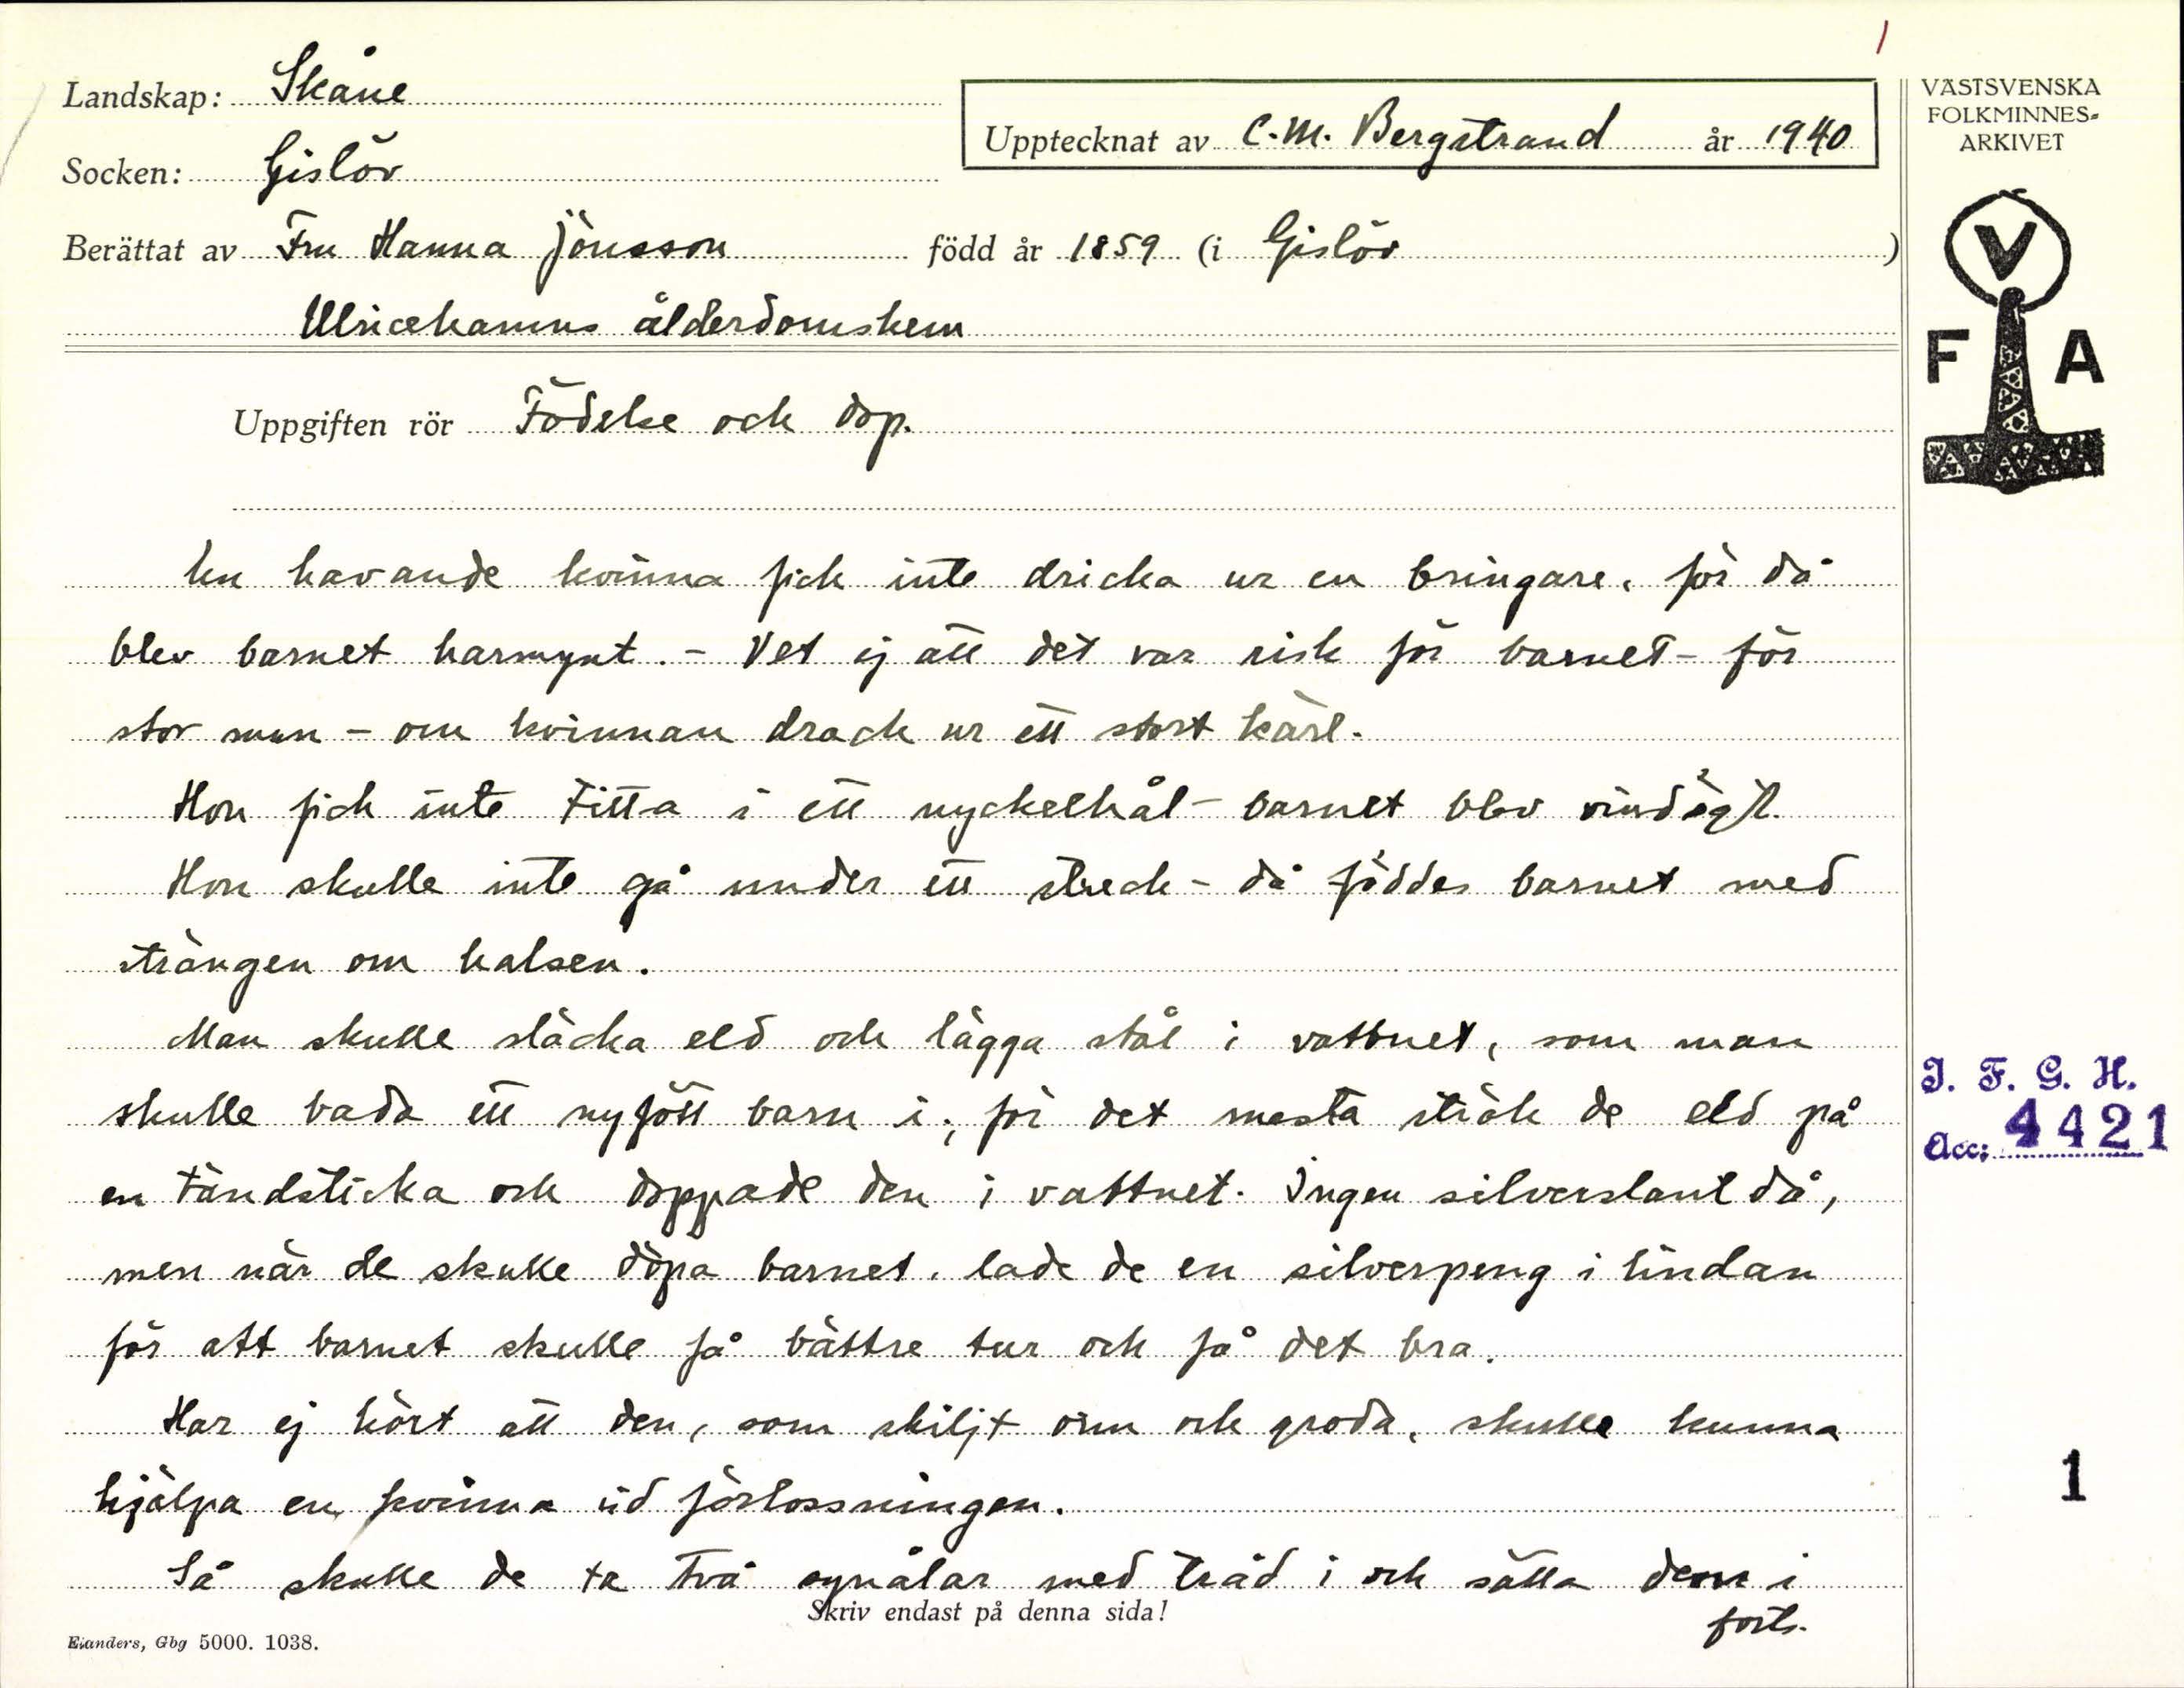 1
Landskap: Skåne
Socken: Gislöv
Upptecknat av C.M. Bergstrand år 1940
Berättat av Fru Hanna Jönsson född år 1859 (i Gislöv )
Ulricehamns ålderdomshem
Uppgiften rör Födelse och dop.
En havande kvinna fick inte dricka ur en bringare, för då
blev barnet harmynt. - Vet ej att det var risk för barnet - för
stor mun - om kvinnan drack ur ett stort kärl.
Hon fick inte titta i ett nyckelhål - barnet blev vindögt.
Hon skulle inte gå under ett streck - då föddes barnet med
strängen om halsen.
Man skulle släcka eld och lägga stål i vattnet, som man
skulle bada ett nyfött barn i; för det mesta strök de eld på
en tändsticka och doppade den i vattnet. Ingen silverslant då,
men när de skulle döpa barnet, lade de en silverpeng i lindan
för att barnet skulle få bättre tur och få det bra.
Har ej hört att den, som skiljt orm och groda, skulle kunna
hjälpa en kvinna vid förlossningen.
Så skulle de ta två synålar med tråd i och sätta dem i
forts.
Skriv endast på denna sida!
Elanders, Gbg 5000. 1038.
VÄSTSVENSKA
FOLKMINNES-
ARKIVET
V
F A
I. F. G. H.
Acc: 4421
1